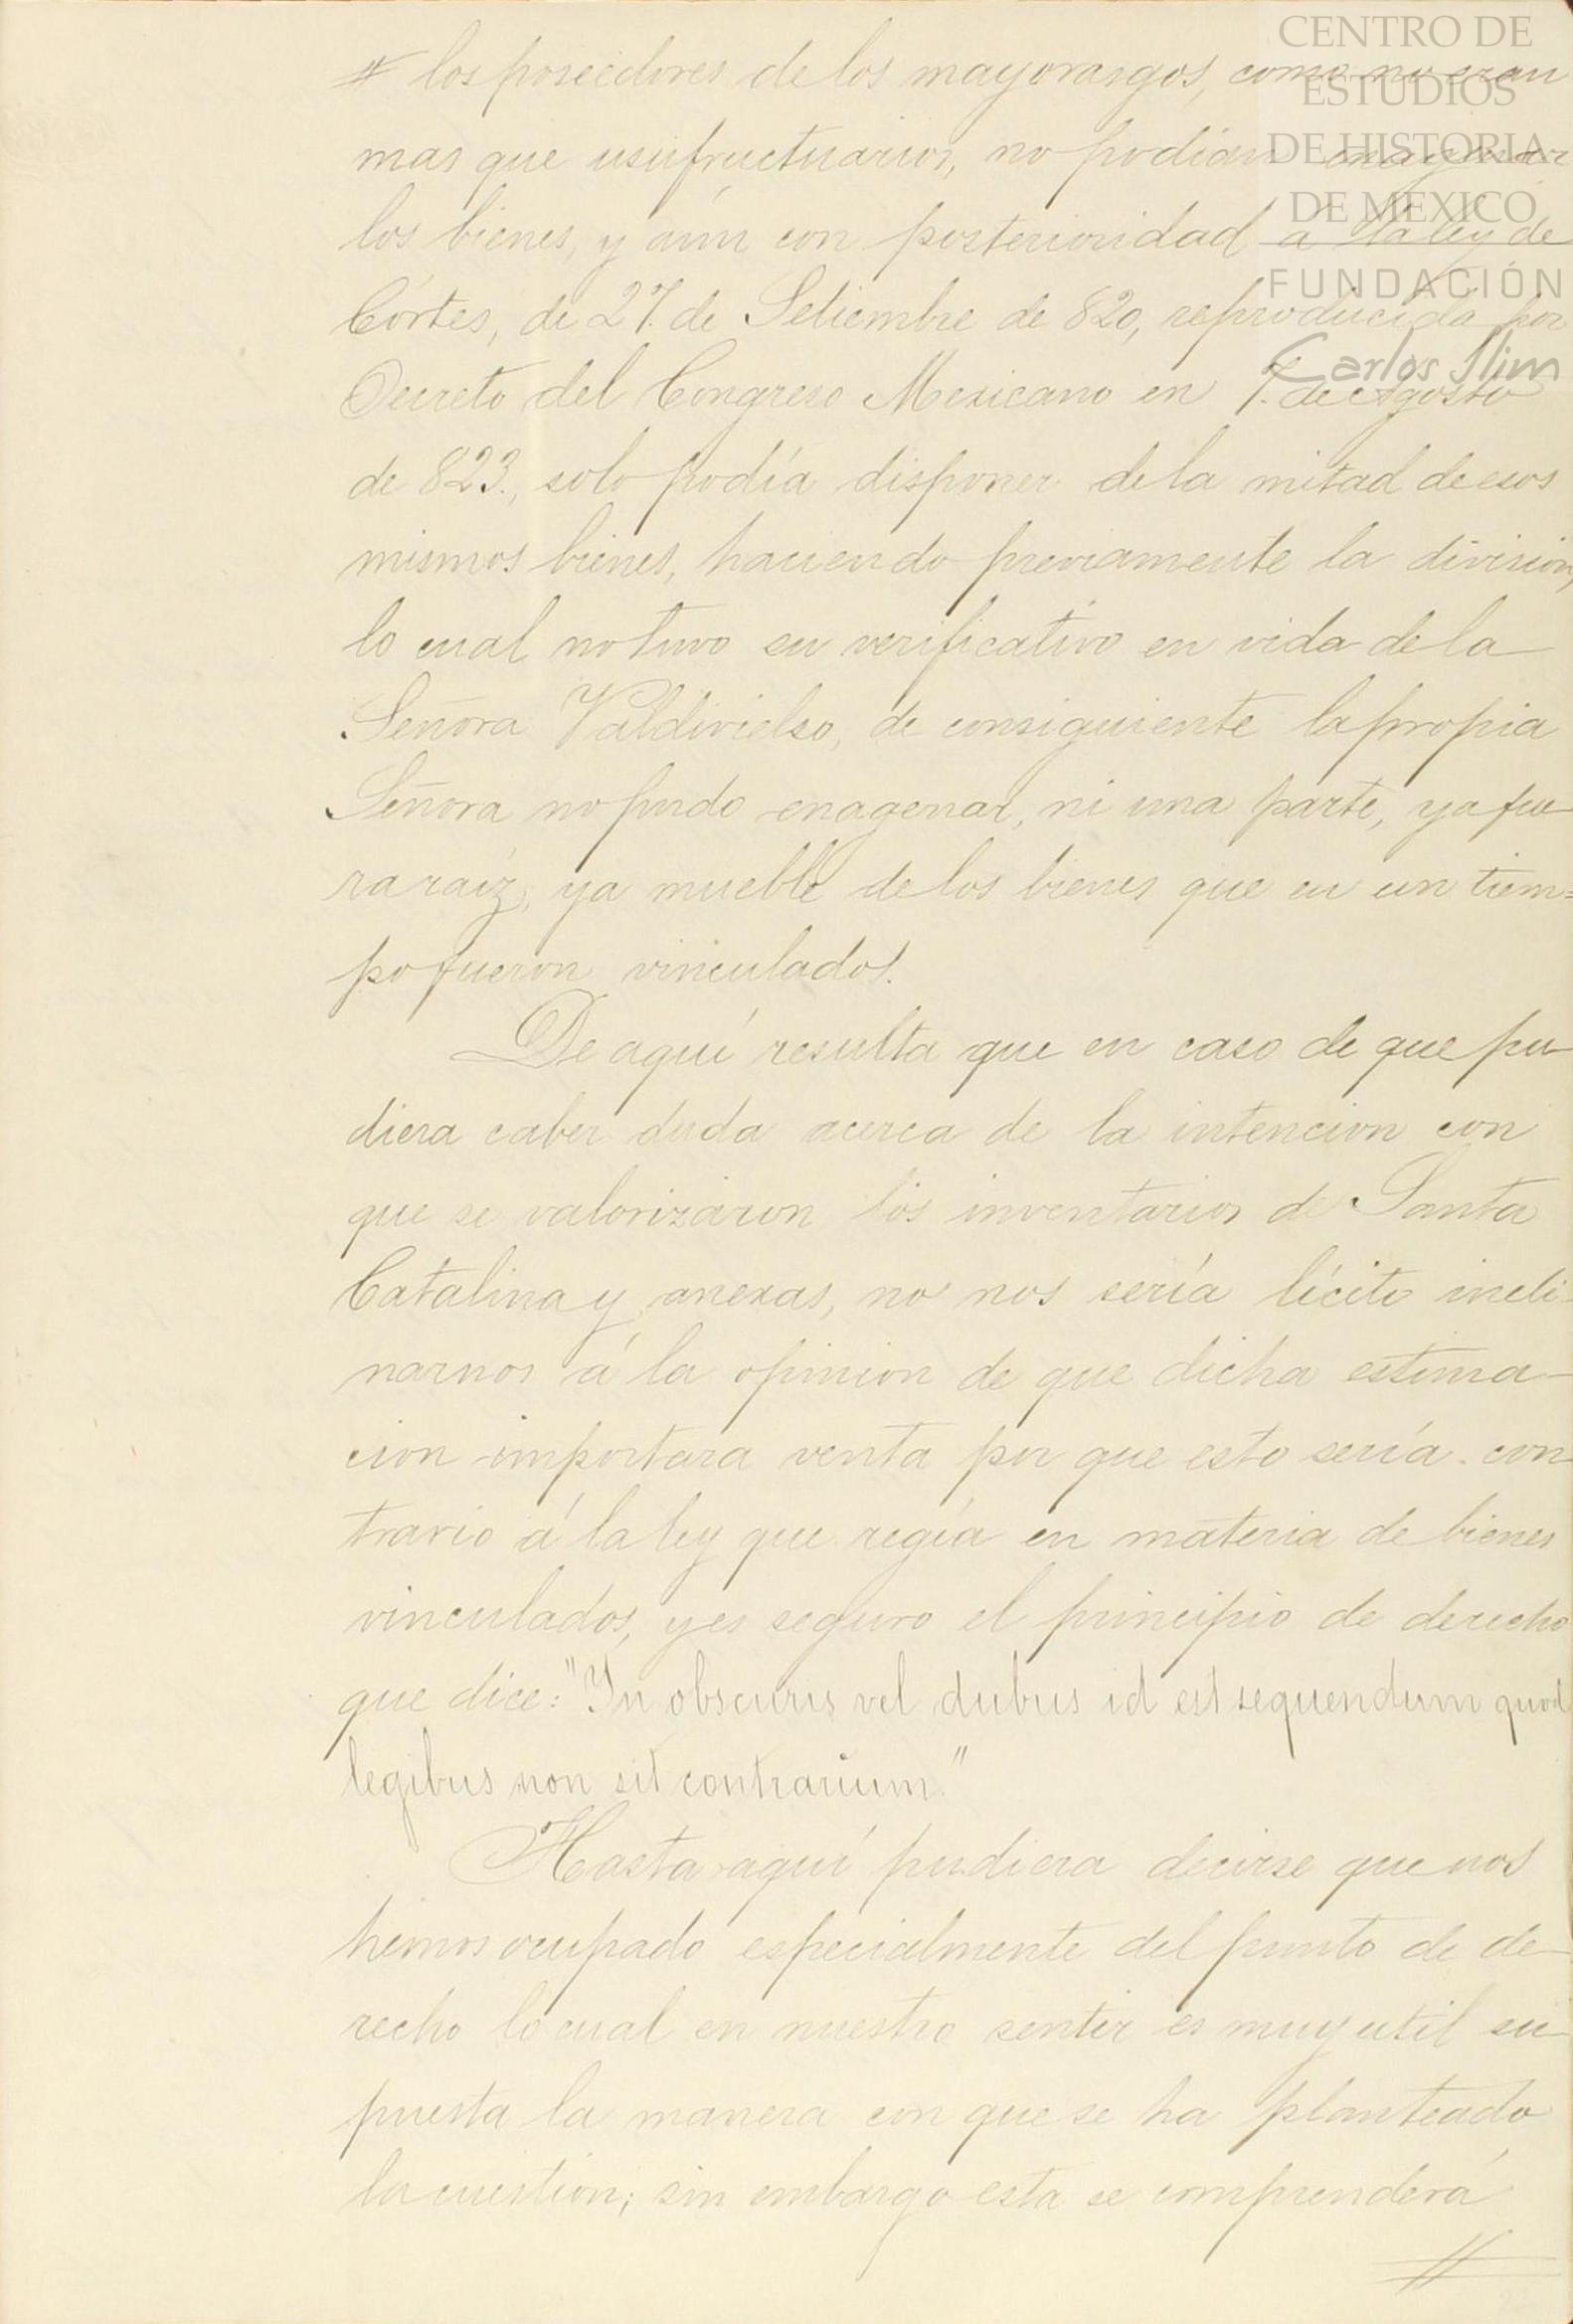 CENTRO DE
ESTUDIOS
DE HISTORIA
DE MEXICO
FUNDACIÓN
Carlos Slim
# los poseedores de los mayorasgos, como no eran
mas que usufructuarios, no podían enagenar
los bienes, y aún con posterioridad á la ley de
Córtes, de 27. de Setiembre de 820, reproducida por
Decreto del Congreso Mexicano en 7. de Agosto
de 823., solo podía disponer de la mitad de esos
mismos bienes, haciendo previamente la division,
lo cual no tuvo su verificativo en vida de la
Señora Valdivielso, de consiguiente la propia
Señora no pudo enagenar, ni una parte, ya fue
ra raíz, ya mueble de los bienes que en un tiem=
po fueron vinculados.
De aquí resulta que en caso de que pu
diera caber duda acerca de la intencion con
que se valorizaron los inventarios de Santa
Catalina y anexas, no nos sería lícito incli-
narnos á la opinion de que dicha estima-
cion importara venta por que esto sería con
trario á la ley que regía en materia de bienes
vinculados, y es seguro el principio de derecho
que dice: "In obscuris vel dubus id est sequendum quod
legibus non sit contrarium."
Hasta aquí pudiera decirse que nos
hemos ocupado especialmente del punto de de-
recho lo cual en nuestro sentir es muy util su
puesta la manera con que se ha planteado
la cuestion; sin embargo esta se comprenderá
#